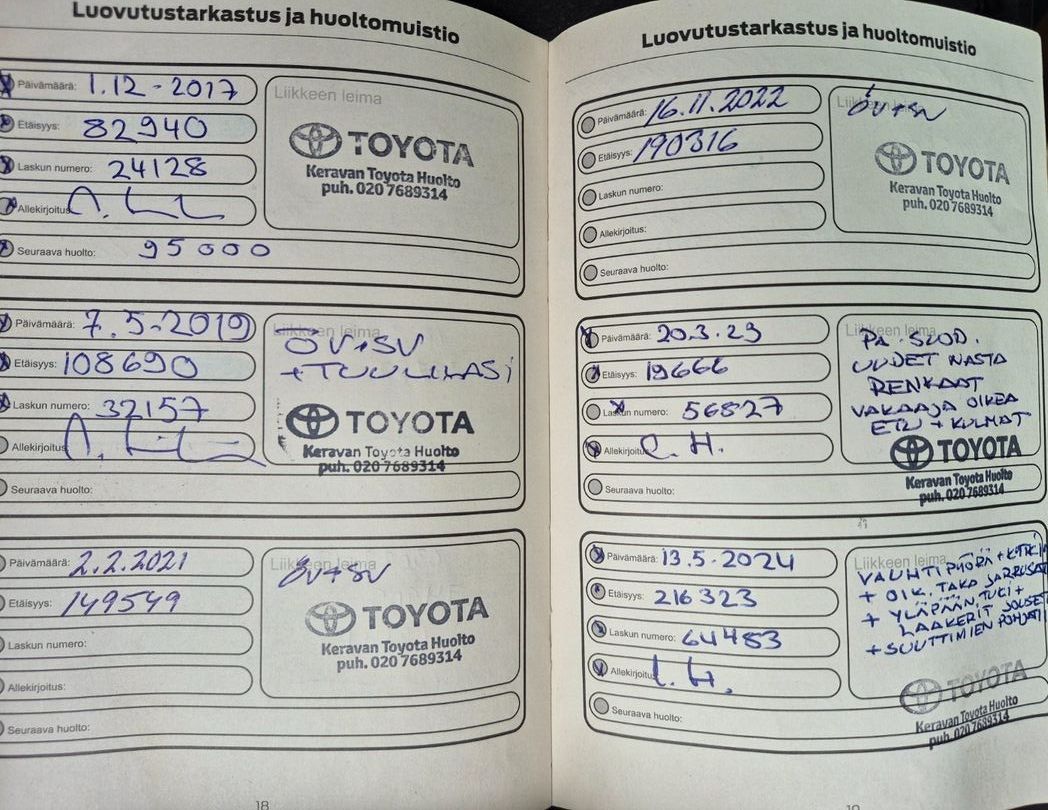 Luovutustarkastus ja huoltomuistio
Päivämäärä: 1.12-2017
Etäisyys: 82940
Laskun numero: 24128
Allekirjoitus
Seuraava huolto: 95000
Liikkeen leima
TOYOTA
Keravan Toyota Huolto
puh. 020 7689314
Päivämäärä: 7.5-2019
Etäisyys: 108690
Laskun numero: 32157
Allekirjoitus
Seuraava huolto:
Liikkeen leima
ÖV+SV
+TUULILASI
TOYOTA
Keravan Toyota Huolto
puh. 020 7689314
Päivämäärä: 2.2.2021
Etäisyys: 149549
Laskun numero:
Allekirjoitus:
Seuraava huolto:
Liikkeen leima
öv+sv
TOYOTA
Keravan Toyota Huolto
puh. 020 7689314
18
Luovutustarkastus ja huoltomuistio
Päivämäärä: 16.11.2022
Etäisyys: 190316
Laskun numero:
Allekirjoitus:
Seuraava huolto:
öv+sv
TOYOTA
Keravan Toyota Huolto
puh. 020 7689314
Päivämäärä: 20.3.23
Etäisyys: 19666
Laskun numero: 56827
Allekirjoitu
Seuraava huolto:
Liikkeen leima
PA. SUOD.
UUDET NASTA
RENKAAT
VAKAAJA OIKEA
ETU + KULMAT
TOYOTA
Keravan Toyota Huolto
puh. 020 7689314
Päivämäärä: 13.5-2024
Etäisyys: 216323
Laskun numero: 64483
Allekirjoitu L.H.
Seuraava huolto:
Liikkeen leima
VAUHTIPYÖRÄ +
+ OIK. TAKA
+ YLÄPÄÄN. TUKI +
LAAKERIT
+ SUUTTIMIEN POHJAT
TOYOTA
Keravan Toyota Huolto
puh. 020 7689314